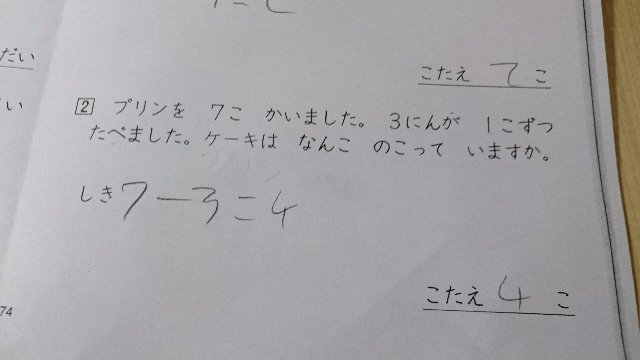 だい
こたえ 7こ
2 プリンを 7こ かいました。 3にんが 1こずつ
たべました。ケーキは なんこ のこって いますか。
しき 7-3=4
こたえ 4 こ
74